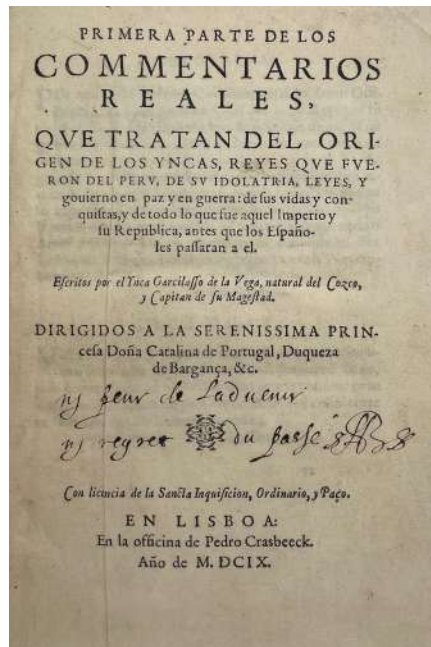 PRIMERA PARTE DE LOS
COMMENTARIOS
REALES,
QVE TRATAN DEL ORI-
GEN DE LOS YNCAS, REYES QVE FVE-
RON DEL PERV, DE SV IDOLATRIA, LEYES, Y
gouierno en paz y en guerra: de sus vidas y con-
quistas, y de todo lo que fue aquel Imperio y
su Republica, antes que los Españo-
les passaran a el.
Escritos por el Ynca Garcilasso de la Vega, natural del Cozco,
y Capitan de su Magestad.
DIRIGIDOS A LA SERENISSIMA PRIN-
cesa Doña Catalina de Portugal, Duqueza
de Bargança, &c.
ny peur de Laduenir
ny regret du passé
Con licencia de la Sancta Inquisicion, Ordinario, y Paço.
EN LISBOA:
En la officina de Pedro Crasbeeck.
Año de M. DCIX.